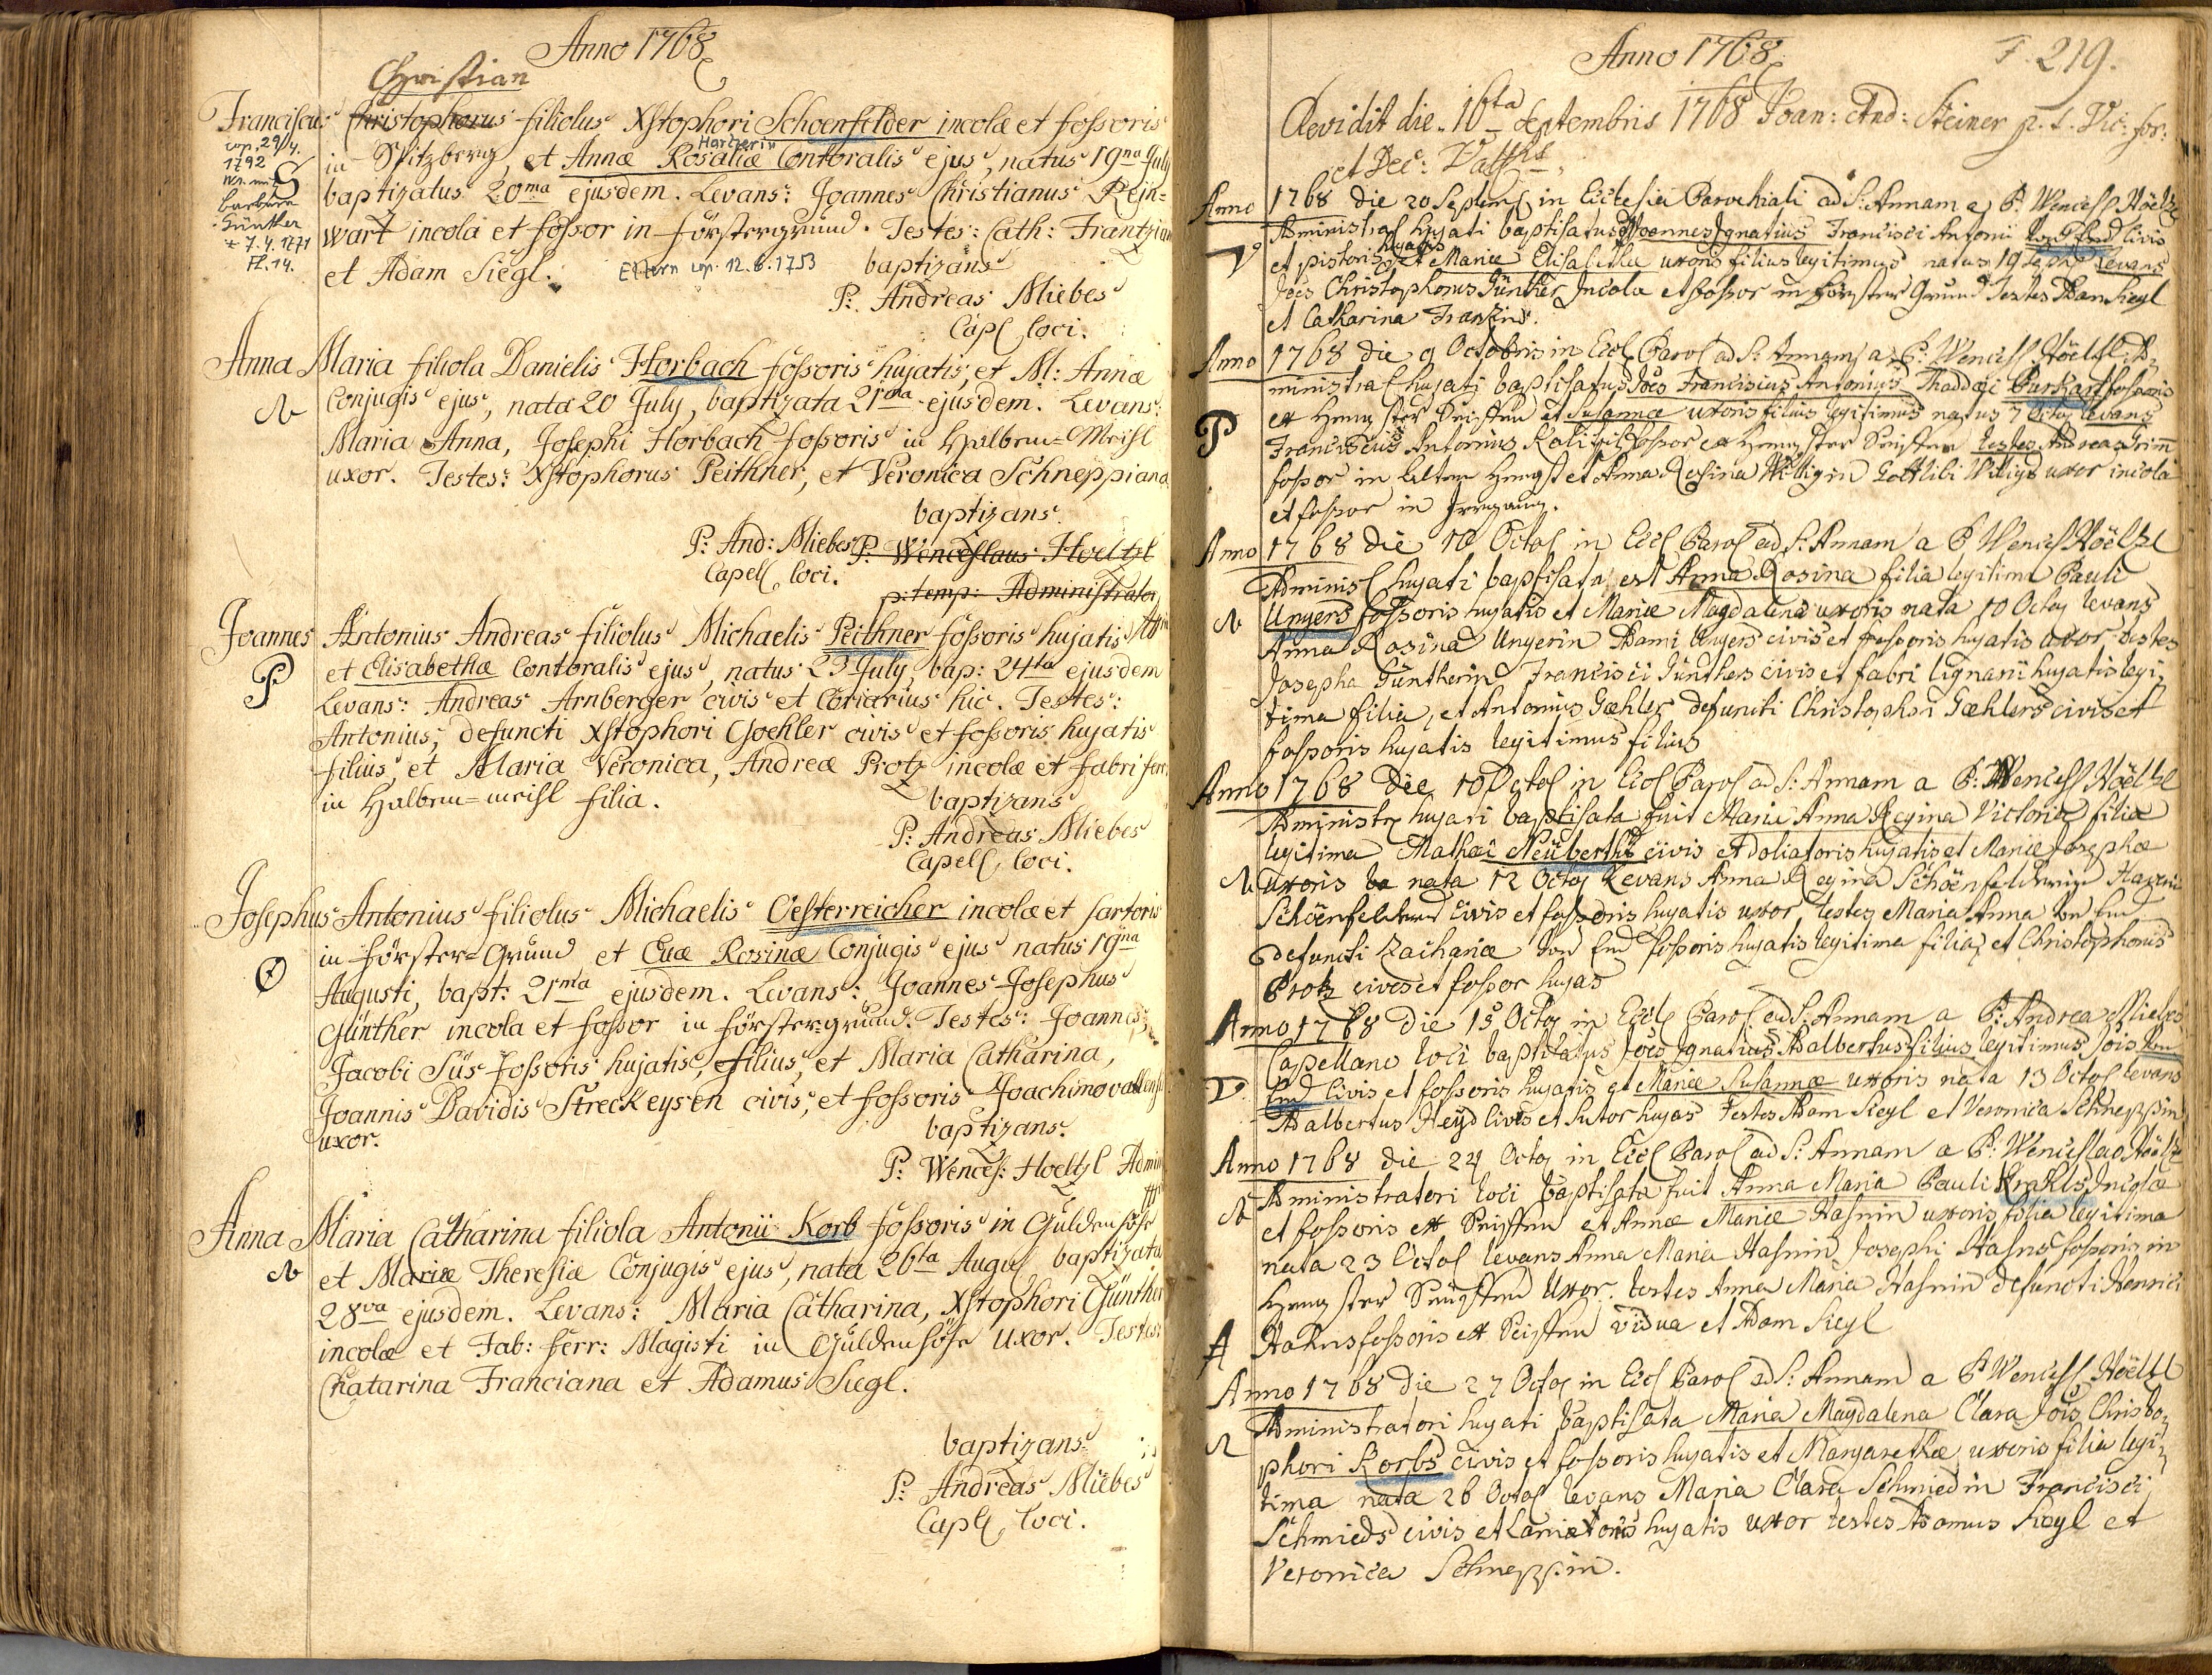 Anno 1768
Christian
Franciscus Christophorus filiolus Xstophori Schoenfelder incolæ et fossoris
cop. 29/4.
1792
in Spitzberg, et Annæ Rosaliæ Contoralis ejus, natus 19na July
Barbara
Günther
* 7.4.1771
Fl. 14.
baptizatus 20ma ejusdem. Levans: Joannes Christianus Rein=
wart incola et fossor in förstergrund. Testes: Cath: Frantzian
et Adam Siegl. Eltern cop. 12.6.1753 baptizans
P: Andreas Miebes
Capl loci.
Anna Maria filiola Danielis Horbach fossoris hujatis, et M: Annæ
N Conjugis ejus, nata 20 July, baptizata 21ma ejusdem. Levans:
Maria Anna, Josephi Horbach fossoris in Halbem=Meisl
uxor. Testes: Xstophorus Peithner, et Veronica Schneppiana
baptizans
P: And: Miebes P: Wenceslaus Hoeltzl
Capell loci. p: temp: Administrator
Joannes Antonius Andreas filiolus Michaelis Peithner fossoris hujatis
P et Elisabethæ Contoralis ejus, natus 23 July, bap: 24ta ejusdem
Levans: Andreas Arnberger civis et Coriarius hic. Testes:
Antonius, defuncti Xstophori Goehler civis et fossoris hujatis
filius, et Maria Veronica, Andreæ Protz incolæ et fabri ferr
in Halbem=meisl filia. baptizans
P: Andreas Miebes
Capell loci.
Josephus Antonius filiolus Michaelis Oesterreicher incolæ et sartoris
O in förster=Grund et Evæ Rosinæ Conjugis ejus natus 19na
Augusti, bapt: 21ma ejusdem. Levans: Joannes Josephus
Günther incola et fossor in förstergrund. Testes: Joannes,
Jacobi Süs fossoris hujatis, filius, et Maria Catharina,
Joannis Davidis Streckeysen civis, et fossoris Joachimovallensis
uxor. baptizans
P: Wences: Hoeltzl Admin
Anna Maria Catharina filiola Antonii Korb fossoris in Güldenhöhe
N et Mariæ Theresiæ Conjugis ejus, nata 26ta Augus baptizata
28va ejusdem. Levans: Maria Catharina, Xstophori Günther
incolæ et Fab: ferr: Magistri in Güldenhöhe uxor. Testes:
Chatarina Franciana et Adamus Siegl.
baptizans
P: Andreas Miebes
Capll loci.
Anno 1768 F. 219.
Revidit die 16ta Septembris 1768 Joan: And: Steiner p. t. Vic: for:
et Dec:
Anno 1768 die 20 Septemb in Ecclesia Parochiali ad S: Annam a P: Wencesl Höeltzl
Administral hujati baptisatus Joannes Ignatius Francisci Antonii von End civis
V et pistoris hujatis et Mariæ Elisabethæ uxoris filius legitimus natus 19 Sept levans
Joes Christophorus Günther Incola et fossor in Förster Grund Testes Adam Siegl
et Catharina Franzin.
Anno 1768 die 9 Octobris in Eccl Paro ad S: Annam a P: Wencesl Höeltzl Ad
ministral hujati baptisatus Joes Franciscus Antonius Thaddæi Burkart fossoris
P ex Hengster et Susannæ uxoris filius legitimus natus 7 Octo levans
Franciscus Antonius fossor ex Hengster testes Andreas Grim
fossor in Hengst et Anna Rosina Willigin Gottlibi Willigs uxor incola
et fossor in Irrgang.
Anno 1768 die 10 Octo in Eccl Paro ad S: Annam a P Wencesl Höeltzl
Adminis hujati baptisata est Anna Rosina filia legitima Pauli
N Ungers fossoris hujatis et Mariæ Magdalena uxoris nata 10 Octo levans
Anna Rosina Ungerin Adami Ungers civis et fossoris hujatis uxor testes
Josepha Güntherin Francisci Günthers civis et fabri lignarii hujatis legi
tima filia, et Antonius Gæhler defuncti Christophori Gæhlers civis et
fossoris hujatis legitimus filius
Anno 1768 Die 10 Octo in Eccl Paro ad S: Annam a P: Wencesl Höeltzl
Administra hujati baptisata fuit Maria Anna Regina Victoria filia
legitima Mathæi Neüberths civis et doliatoris hujatis et Mariæ Josephæ
N uxoris nata 12 Octo Levans Anna Regina Schöenfelderin
Schöenfelders civis et fossoris hujatis uxor, testes Maria Anna von End
defuncti Zachariæ von End fossoris hujatis legitima filia, et Christophorus
Protz cives et fossor hujas
Anno 1768 die 15 Octo in Eccl Paro ad S: Annam a P: Andrea Miebes
Capellano loci baptisatus Joes Ignatius Adalbertus filius legitimus Jois von
V End civis et fossoris hujatis et Mariæ Susannæ uxoris nata 13 Octo levans
Adalbertus Heyd civis et Sutor hujas Testes Adam Siegl et Veronica Schneppin
Anno 1768 die 24 Octo in Eccl Paro ad S: Annam a P: Wenceslao Höeltzl
N Administratori loci baptisata fuit Anna Maria Pauli Krahls Incolæ
et fossoris ex et Annæ Mariæ Hahnin uxoris filia legitima
nata 23 Octo levans Anna Maria Hahnin Josephi Hahns fossoris in
Hengster uxor. testes Anna Maria Hahnin defuncti Henrici
Hahns fossoris ex vidua et Adam Siegl
Anno 1768 die 27 Octo in Eccl Paro ad S: Annam a P Wencesl Höeltzl
Administratori hujati baptisata Maria Magdalena Clara Jois Christo
phori Korbs civis et fossoris hujatis et Margarethæ uxoris filia legi
tima nata 26 Octo levans Maria Clara Schmiedin Francisci
Schmieds civis et Laniatoris hujatis uxor testes Adamus Siegl et
Veronica Schneppin.